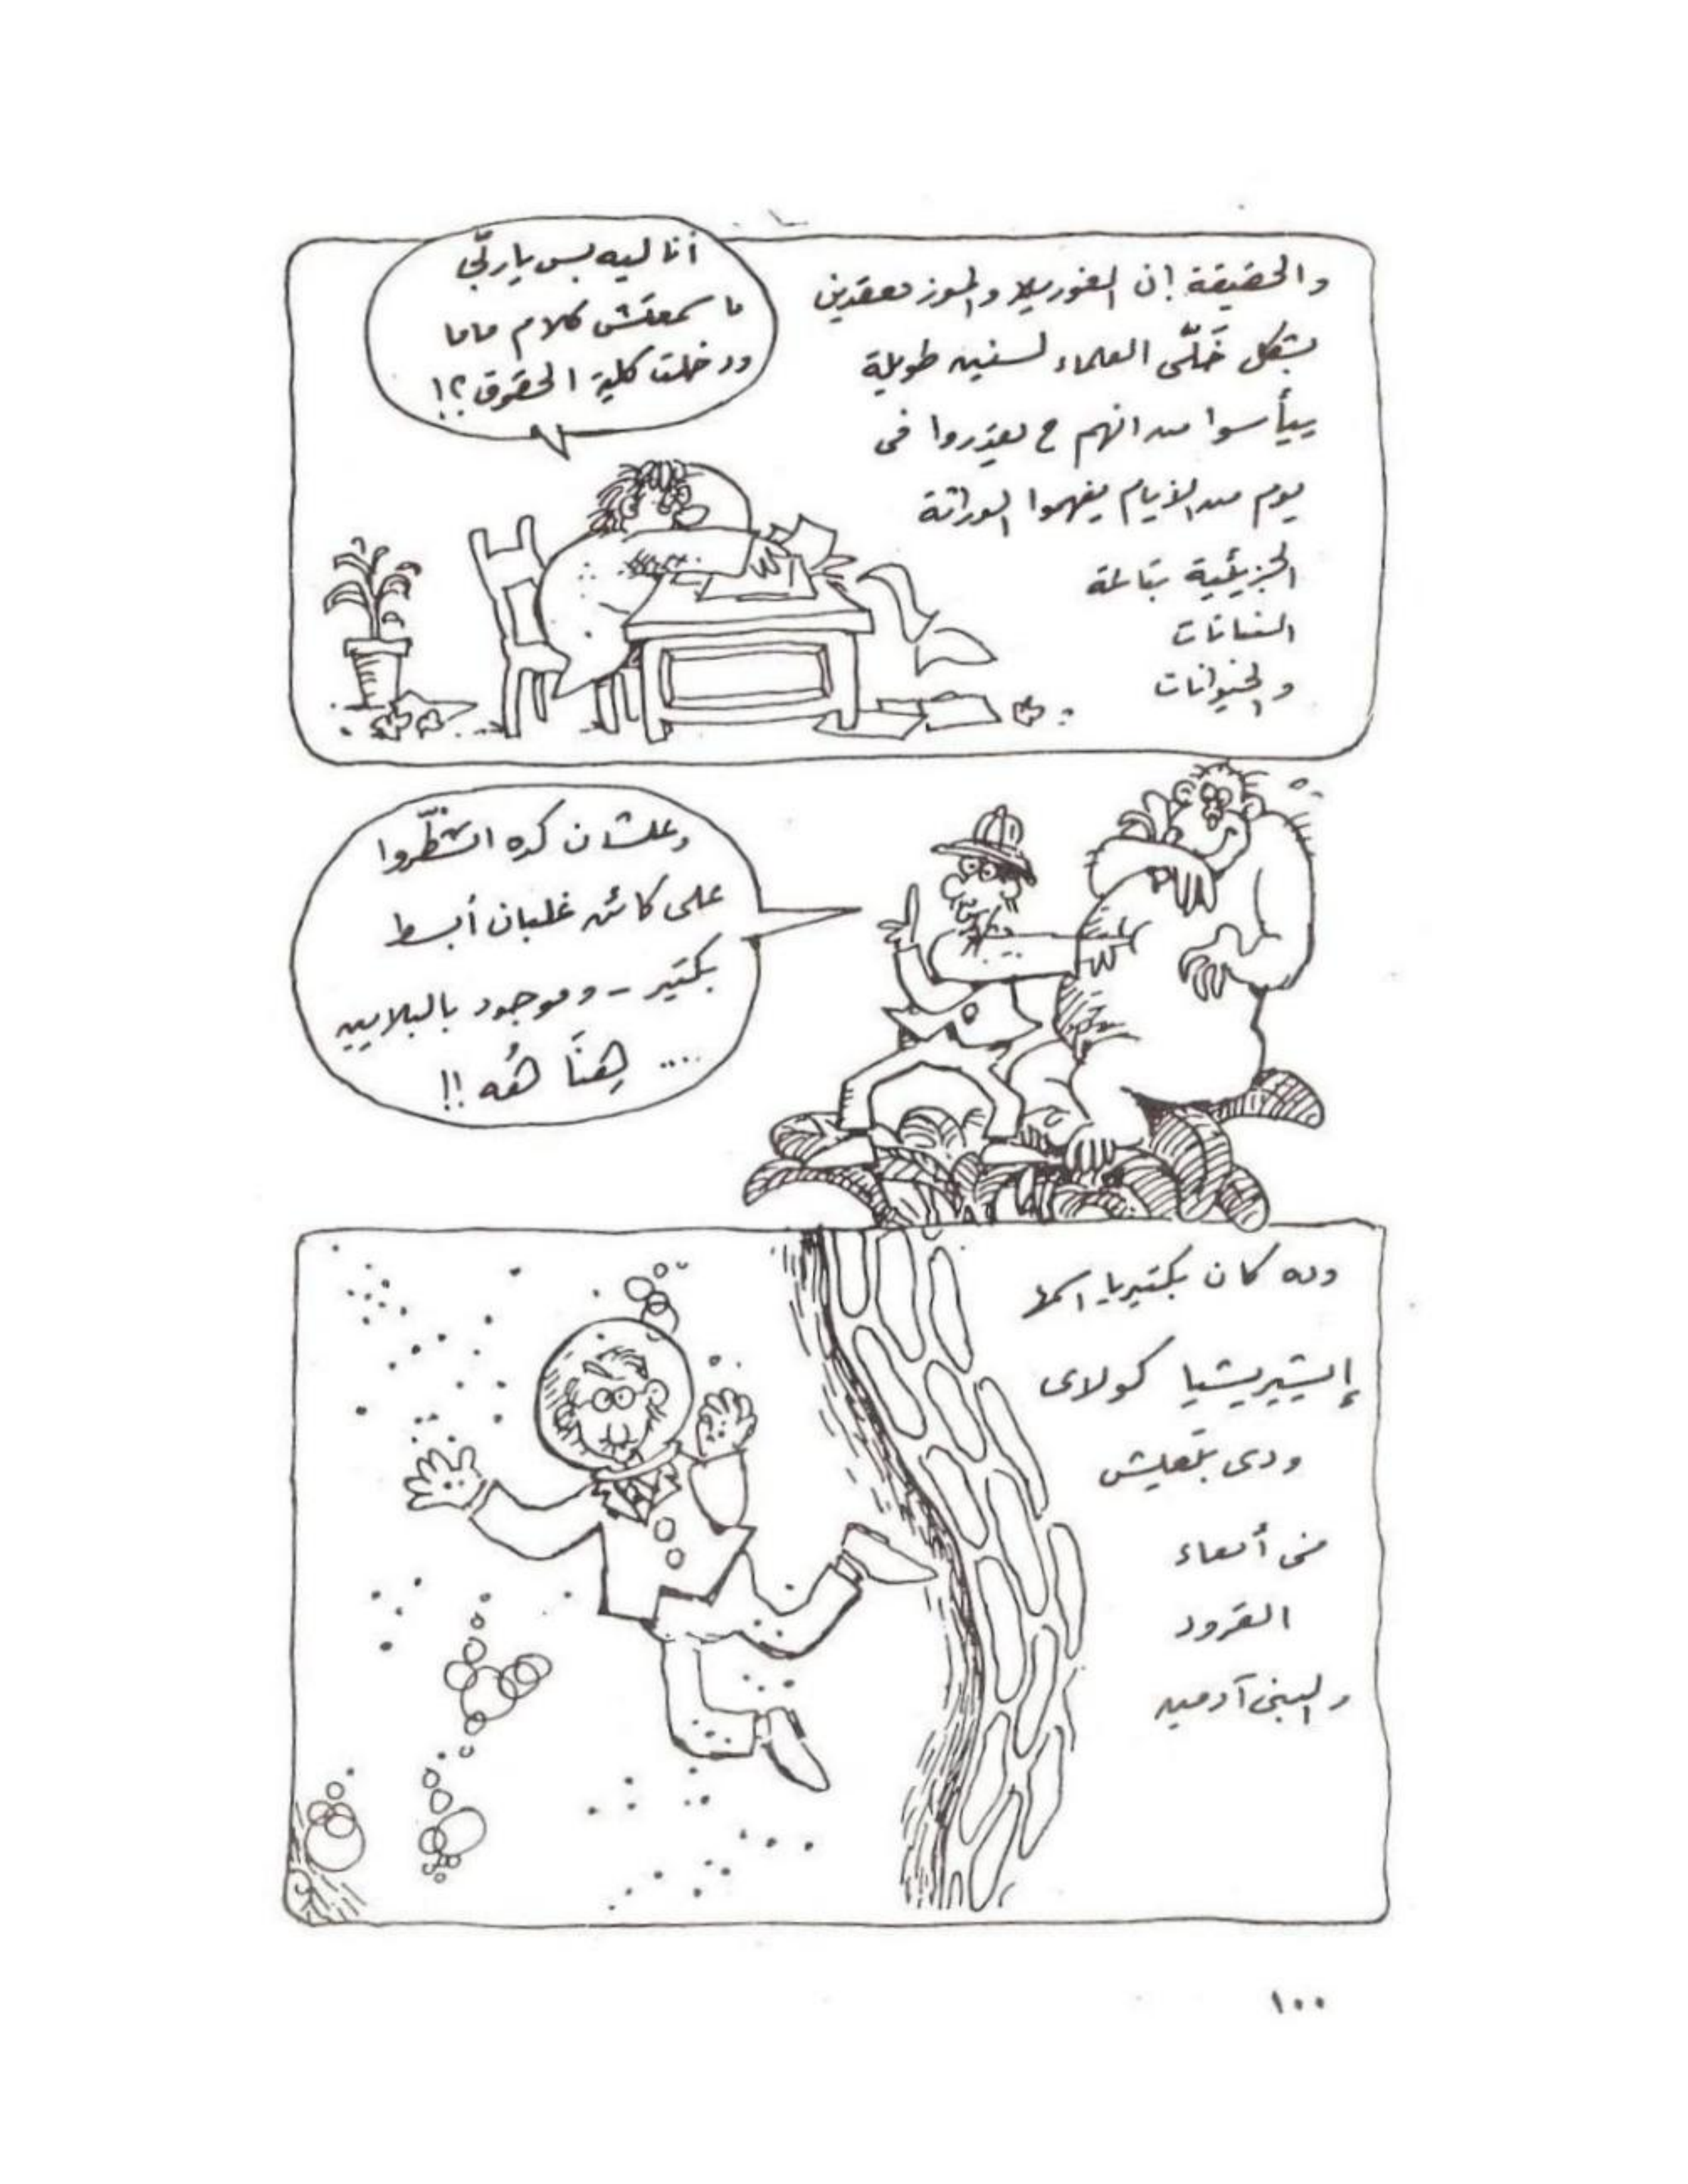 والحقيقة إن الغوريلا والموز معقدين
بشكل خَلّى العلماء لسنين طويلة
ييأسوا من انهم ح يقدروا فى
يوم من الأيام يفهموا الوراثة
الجزيئية بتاعة
النباتات
والحيوانات
أنا ليه بس ياربّى
ما سمعتش كلام ماما
ودخلت كلية الحقوق؟!
وعلشان كده اتشطّروا
على كائن غلبان أبسط
بكتير - وموجود بالبلايين
.... هِنَا هُه !!
وده كان بكتيريا اسمها
إيشيريشيا كولاى
ودى بتعيش
فى أمعاء
القرود
والبنى آدمين
١٠٠